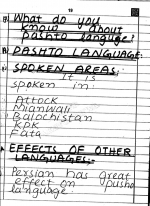 18
Q) What do you
know about
pashto language?
A) PASHTO LANGUAGE:
SPOKEN AREAS:
It is
spoken in:
Attock
Mianwali
Balochistan
KPK
Fata
EFFECTS OF OTHER
LANGUAGES:
Persian has great
effect on pushto
language